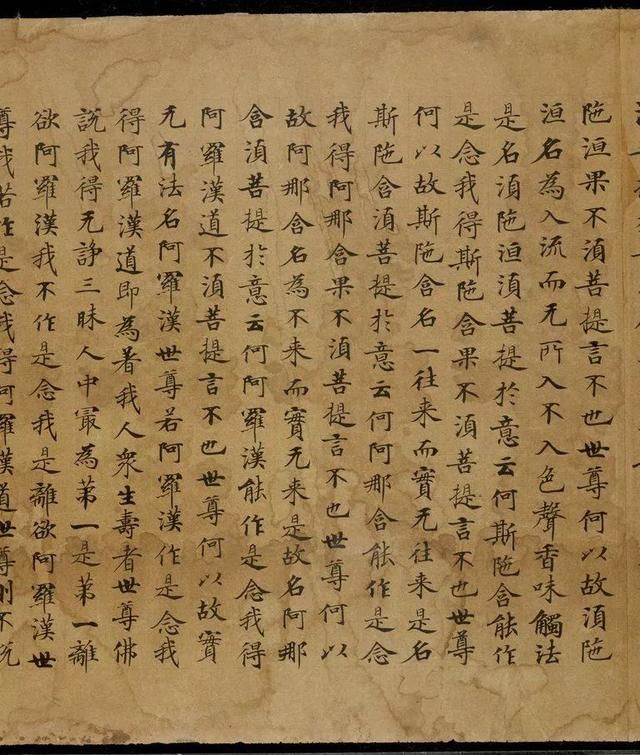 陁洹果不湏菩提言不也世尊何以故湏陁
洹名為入流而无所入不入色聲香味觸法
是名湏陁洹湏菩提於意云何斯陁含能作
是念我得斯陁含果不湏菩提言不也世尊
何以故斯陁含名一往来而實无往来是名
斯陁含湏菩提於意云何阿那含能作是念
我得阿那含果不湏菩提言不也世尊何以
故阿那含名為不来而實无来是故名阿那
含湏菩提於意云何阿羅漢能作是念我得
阿羅漢道不湏菩提言不也世尊何以故實
无有法名阿羅漢世尊若阿羅漢作是念我
得阿羅漢道即為著我人衆生壽者世尊佛
說我得无諍三昧人中冣為苐一是苐一離
欲阿羅漢我不作是念我是離欲阿羅漢世
尊我若作是念我得阿羅漢道世尊則不說